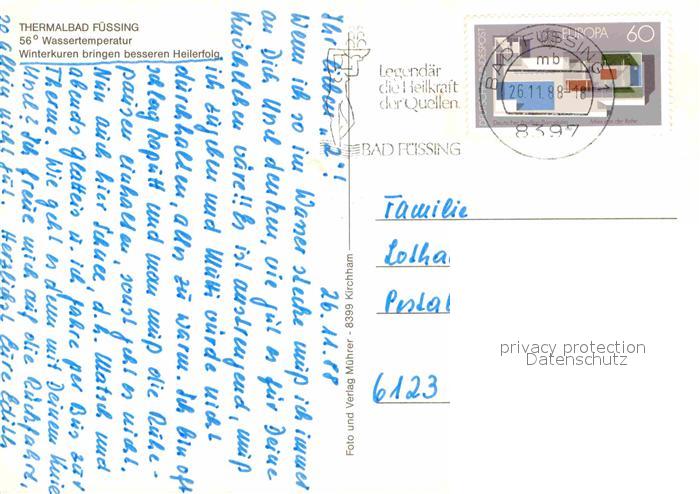 THERMALBAD FÜSSING
56° Wassertemperatur
Winterkuren bringen besseren Heilerfolg.
26.11.88
Ihr Lieben 2!
Wenn ich so im Wasser stecke muß ich immer
an Dich Uml denken, wie gut es für Deine
Knöchelchen wäre!! Es ist anstrengend, muß
ich zugeben und Mutti würde nicht
durchhalten, alles zu warm. Ich bin oft
schlag kaputt und man muß die Ruhe-
pausen einhalten, sonst geht es nicht.
Nun auch hier Schnee, d.h. Matsch und
abends Glatteis u. ich fahre per Bus zur
Therme. Wie geht es denn mit Deinem Knie
Ursel? Ich freue mich auf die Rückfahrt,
Herzlichst Eure Edith
Foto und Verlag Mührer - 8399 Kirchham
Legendär
die Heilkraft
der Quellen.
BAD FÜSSING
BAD FÜSSING 1
mb
26.11.88-18
8397
DEUTSCHE BUNDESPOST
EUROPA
60
Deutscher Pavillon, Barcelona
Mies van der Rohe
Familie
Lotha
Postst
6123
privacy protection
Datenschutz